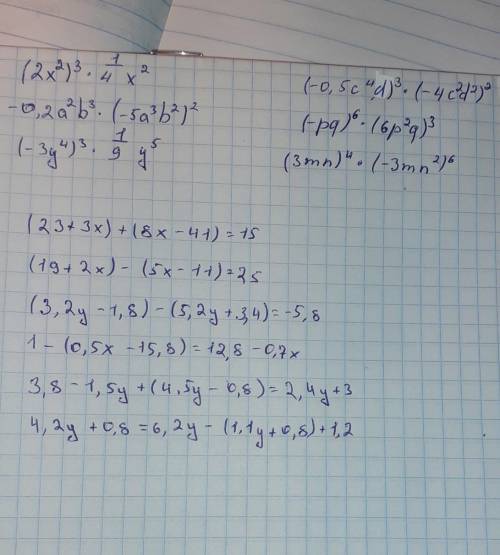 (2x²)³ · 1/4 x²
-0,2a²b³ · (-5a³b²)²
(-3y⁴)³ · 1/9 y⁵
(-0,5c⁴d)³ · (-4c²d²)²
(-pq)⁶ · (6p²q)³
(3mn)⁴ · (-3mn²)⁶
(23+3x)+(8x-41)=15
(19+2x)-(5x-11)=25
(3,2y-1,8)-(5,2y+3,4)=-5,8
1-(0,5x-15,8)=12,8-0,7x
3,8-1,5y+(4,5y-0,8)=2,4y+3
4,2y+0,8=6,2y-(1,1y+0,8)+1,2